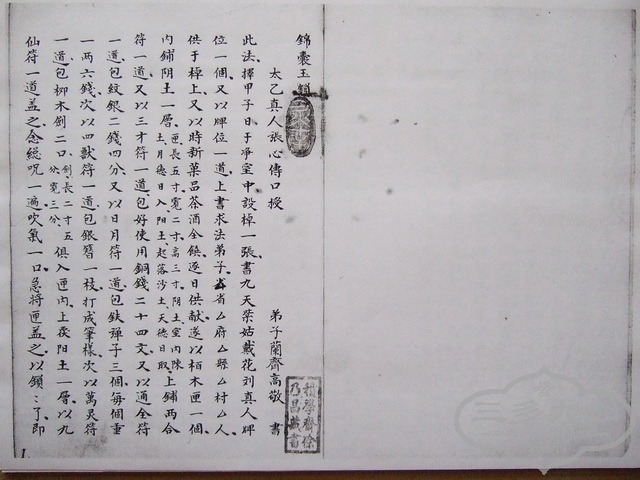 錦囊玉鎖
太乙真人張心傳口授 弟子蘭齋高敬 書
此法擇甲子日于凈室中設棹一張書九天柴姑戴花刘真人牌
位一個又以牌位一道上書求法弟子厶省厶府厶縣厶村厶人
供于棹上又以時新菓品茶酒仝饒逐日供献遂以栢木匣一個
內鋪阴土一層匣長五寸寬二寸高三寸阴土室內陳土月德日入阳土起落沙土天德日取上鋪两合
符一道又以三才符一道包好使用銅錢二十四文又以通全符
一道包紋銀二錢四分又以日月符一道包鉄弹子三個每個重
一两六錢次以四獸符一道包銀簪一枝打成筆樣次以萬灵符
一道包柳木劍二口剑長二寸五分寬三分俱入匣內上蓋阳土一層以九
仙符一道盖之念緫咒一遍吹氣一口急將匣盖之以鎖鎖了即
積學齋徐乃昌藏書
1.